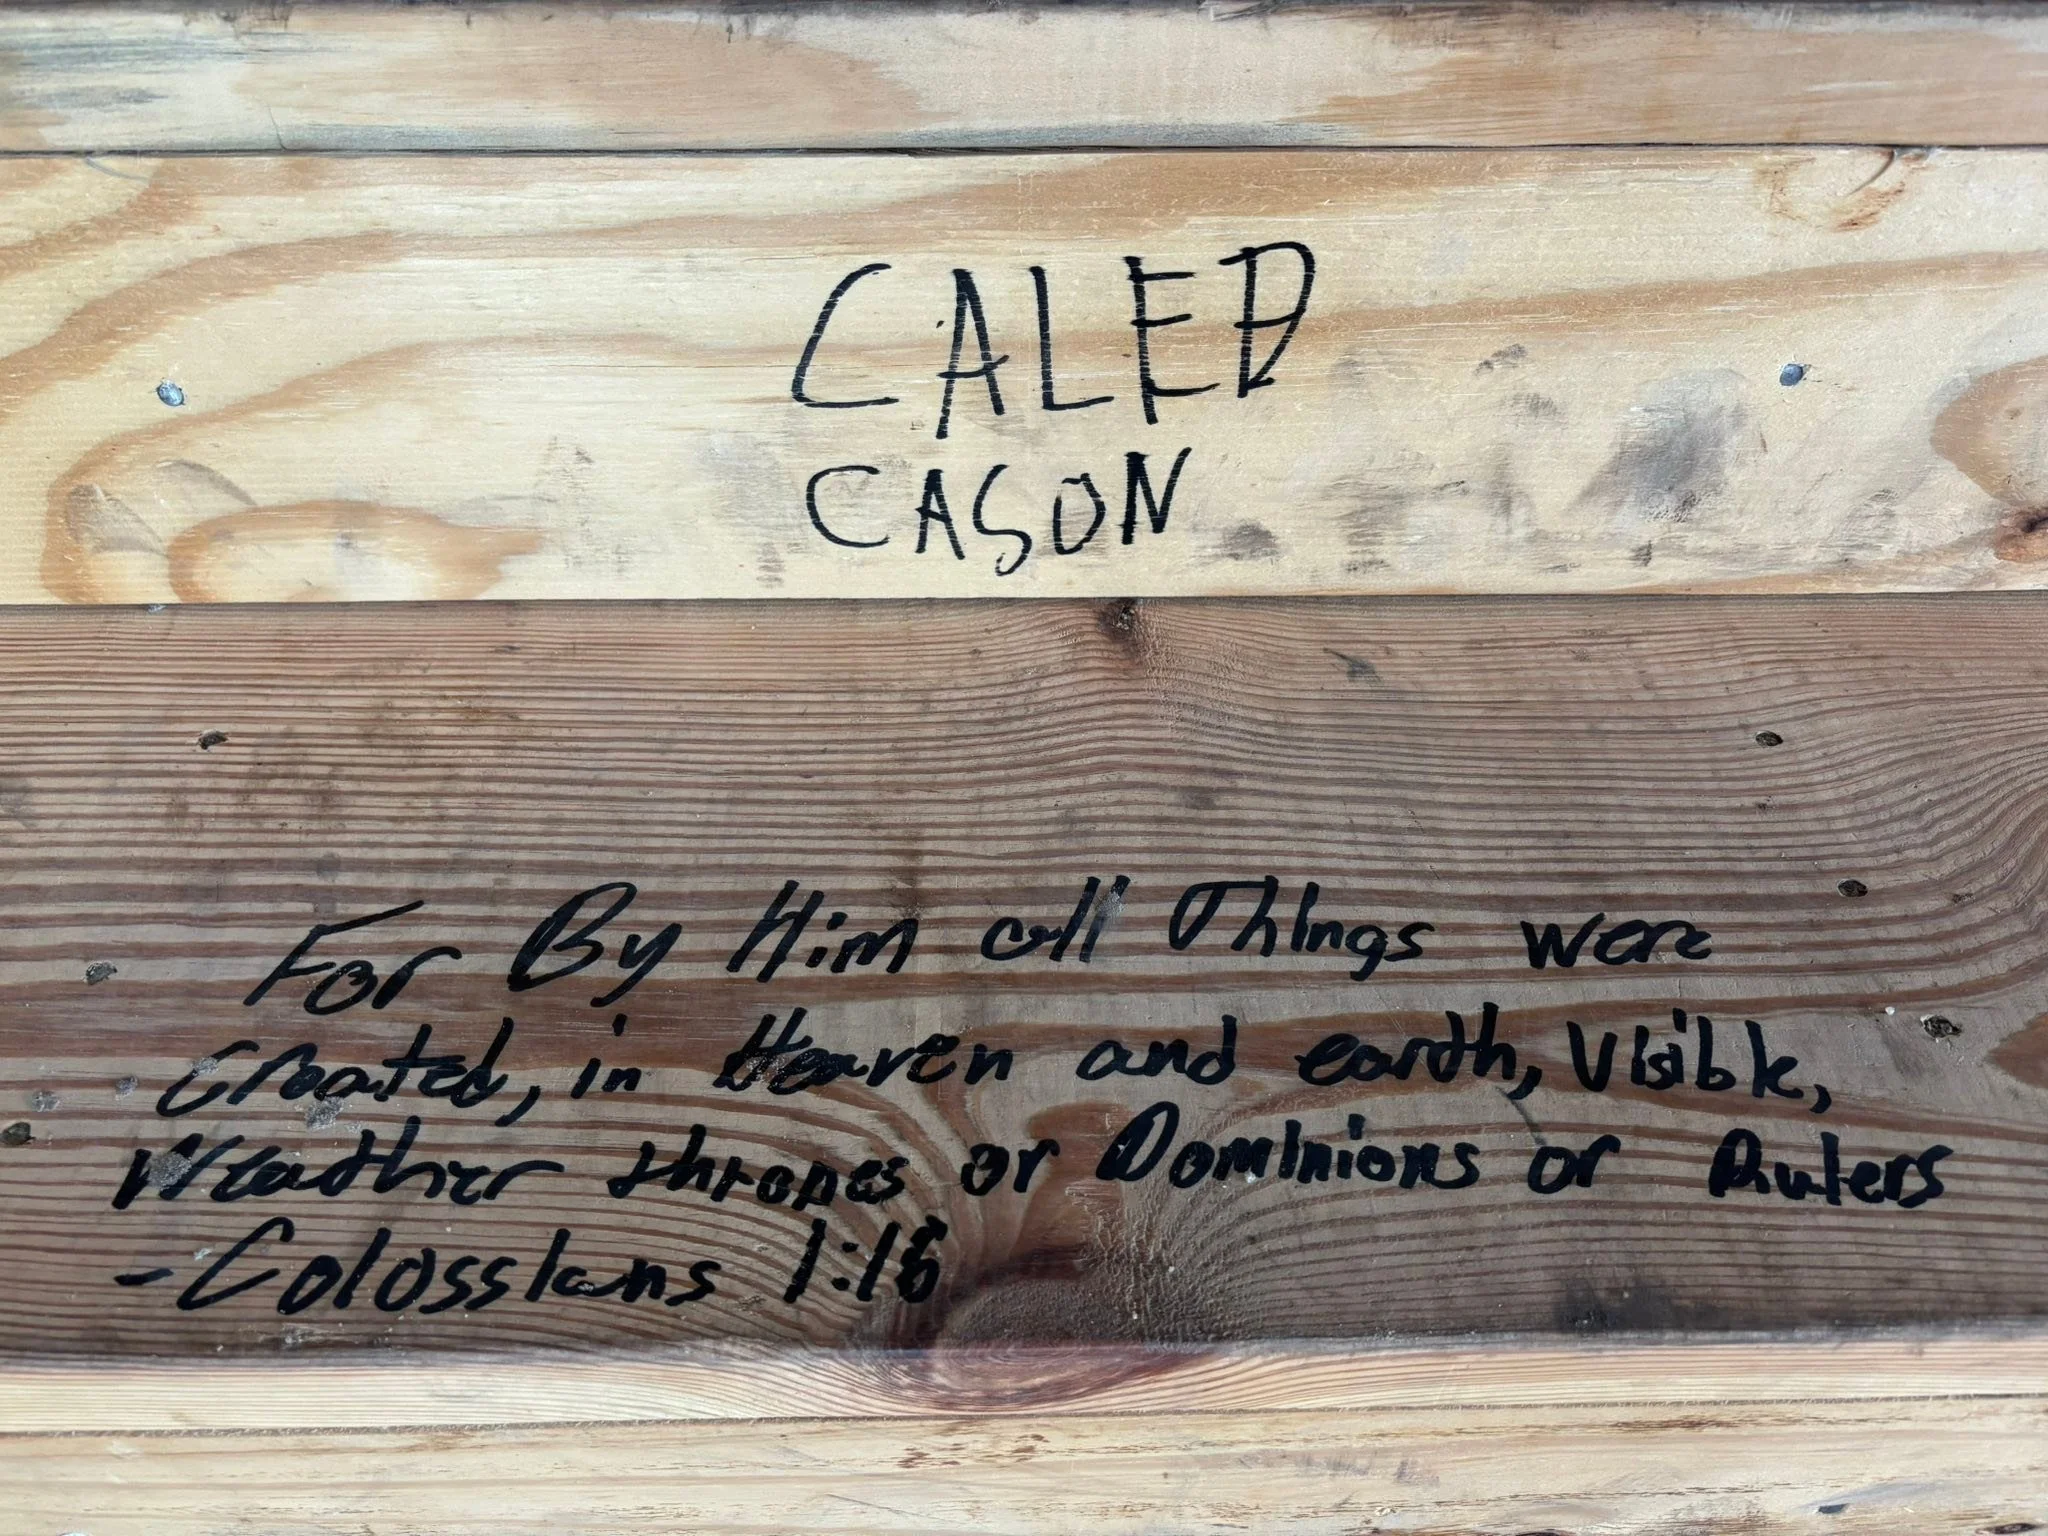 CALEB
CASON
For By Him all Things were
created, in Heaven and earth, Visible,
Weather thrones or Dominions or Rulers
-Colossians 1:16